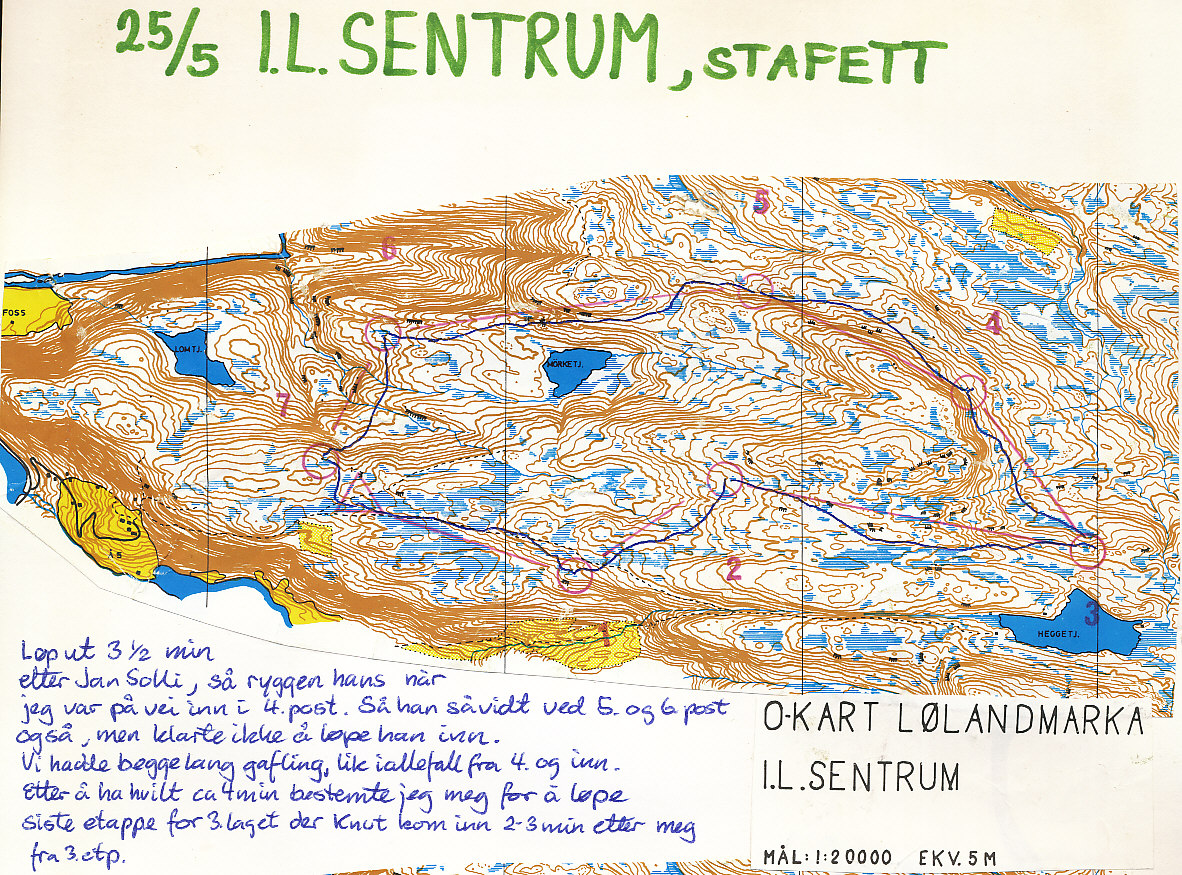 25/5 I.L. SENTRUM, STAFETT
5
6
FOSS
4
LOMTJ.
MORKETJ.
7
ÅS
2
3
HEGGETJ.
1
Løp ut 3 1/2 min
etter Jan Solli, så ryggen hans når
jeg var på vei inn i 4. post. Så han såvidt ved 5. og 6. post
også, men klarte ikke å løpe han inn.
Vi hadde begge lang gafling, lik iallefall fra 4. og inn.
Etter å ha hvilt ca 4 min bestemte jeg meg for å løpe
siste etappe for 3. laget der Knut kom inn 2-3 min etter meg
fra 3. etp.
O-KART LØLANDMARKA
I.L. SENTRUM
MÅL: 1:20000 EKV. 5 M